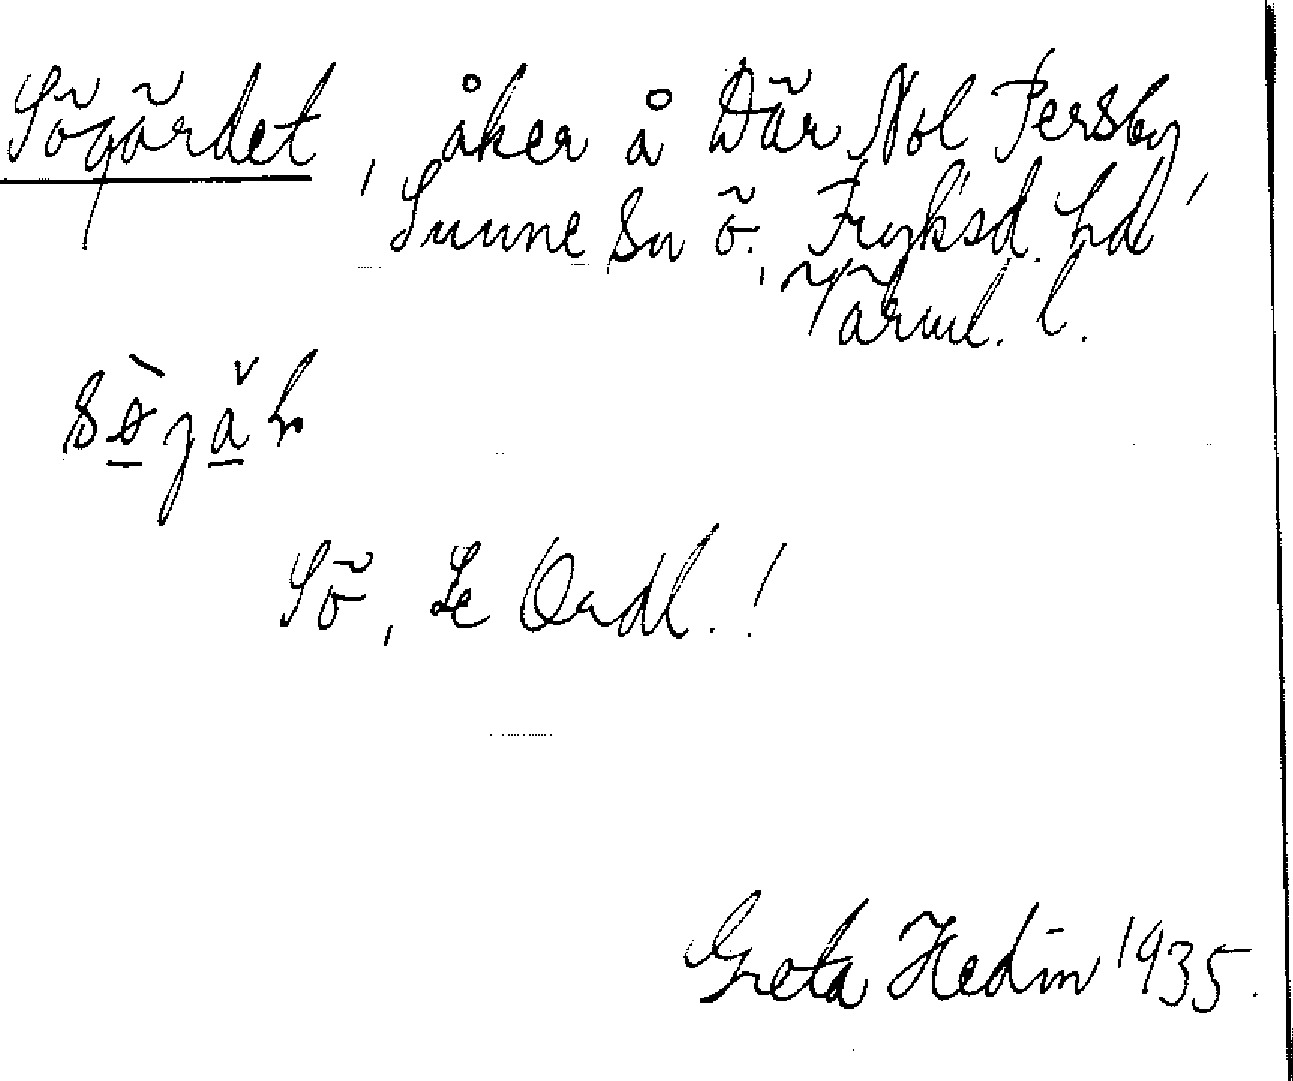 Sögärdet, åker å Där Nol Persby,
Sunne sn ö. Fryksd. hd,
Värml. l.
Sö, Se Ordl.!
Greta Hedin 1935.